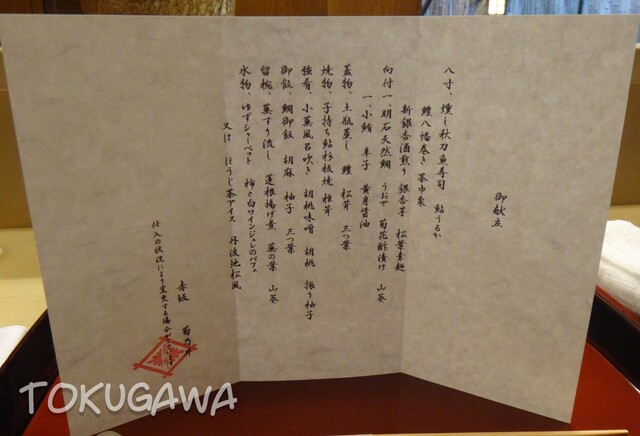 御献立
八寸、燻し秋刀魚寿司 鮎うるか
鱧八幡巻き 茶巾栗
新銀杏酒煎り 銀杏芋 松葉素麺
向付一、明石天然鯛 うおぜ 菊花酢漬け 山葵
一、小鮪 辛子 黄身醤油
蓋物、土瓶蒸し 鱧 松茸 三つ葉
焼物、子持ち鮎杉板焼 椎茸
強肴、小蕪風呂吹き 胡桃味噌 胡桃 振り柚子
御飯、鯛御飯 胡麻 柚子 三つ葉
留椀、蕪すり流し 蓮根揚げ煮 蕪の葉 山葵
水物、ゆずシャーベット 柿と白ワインジュレのパフェ
又は ほうじ茶アイス 丹波地松風
赤坂 菊乃井
仕入の状況により変更する場合が
TOKUGAWA